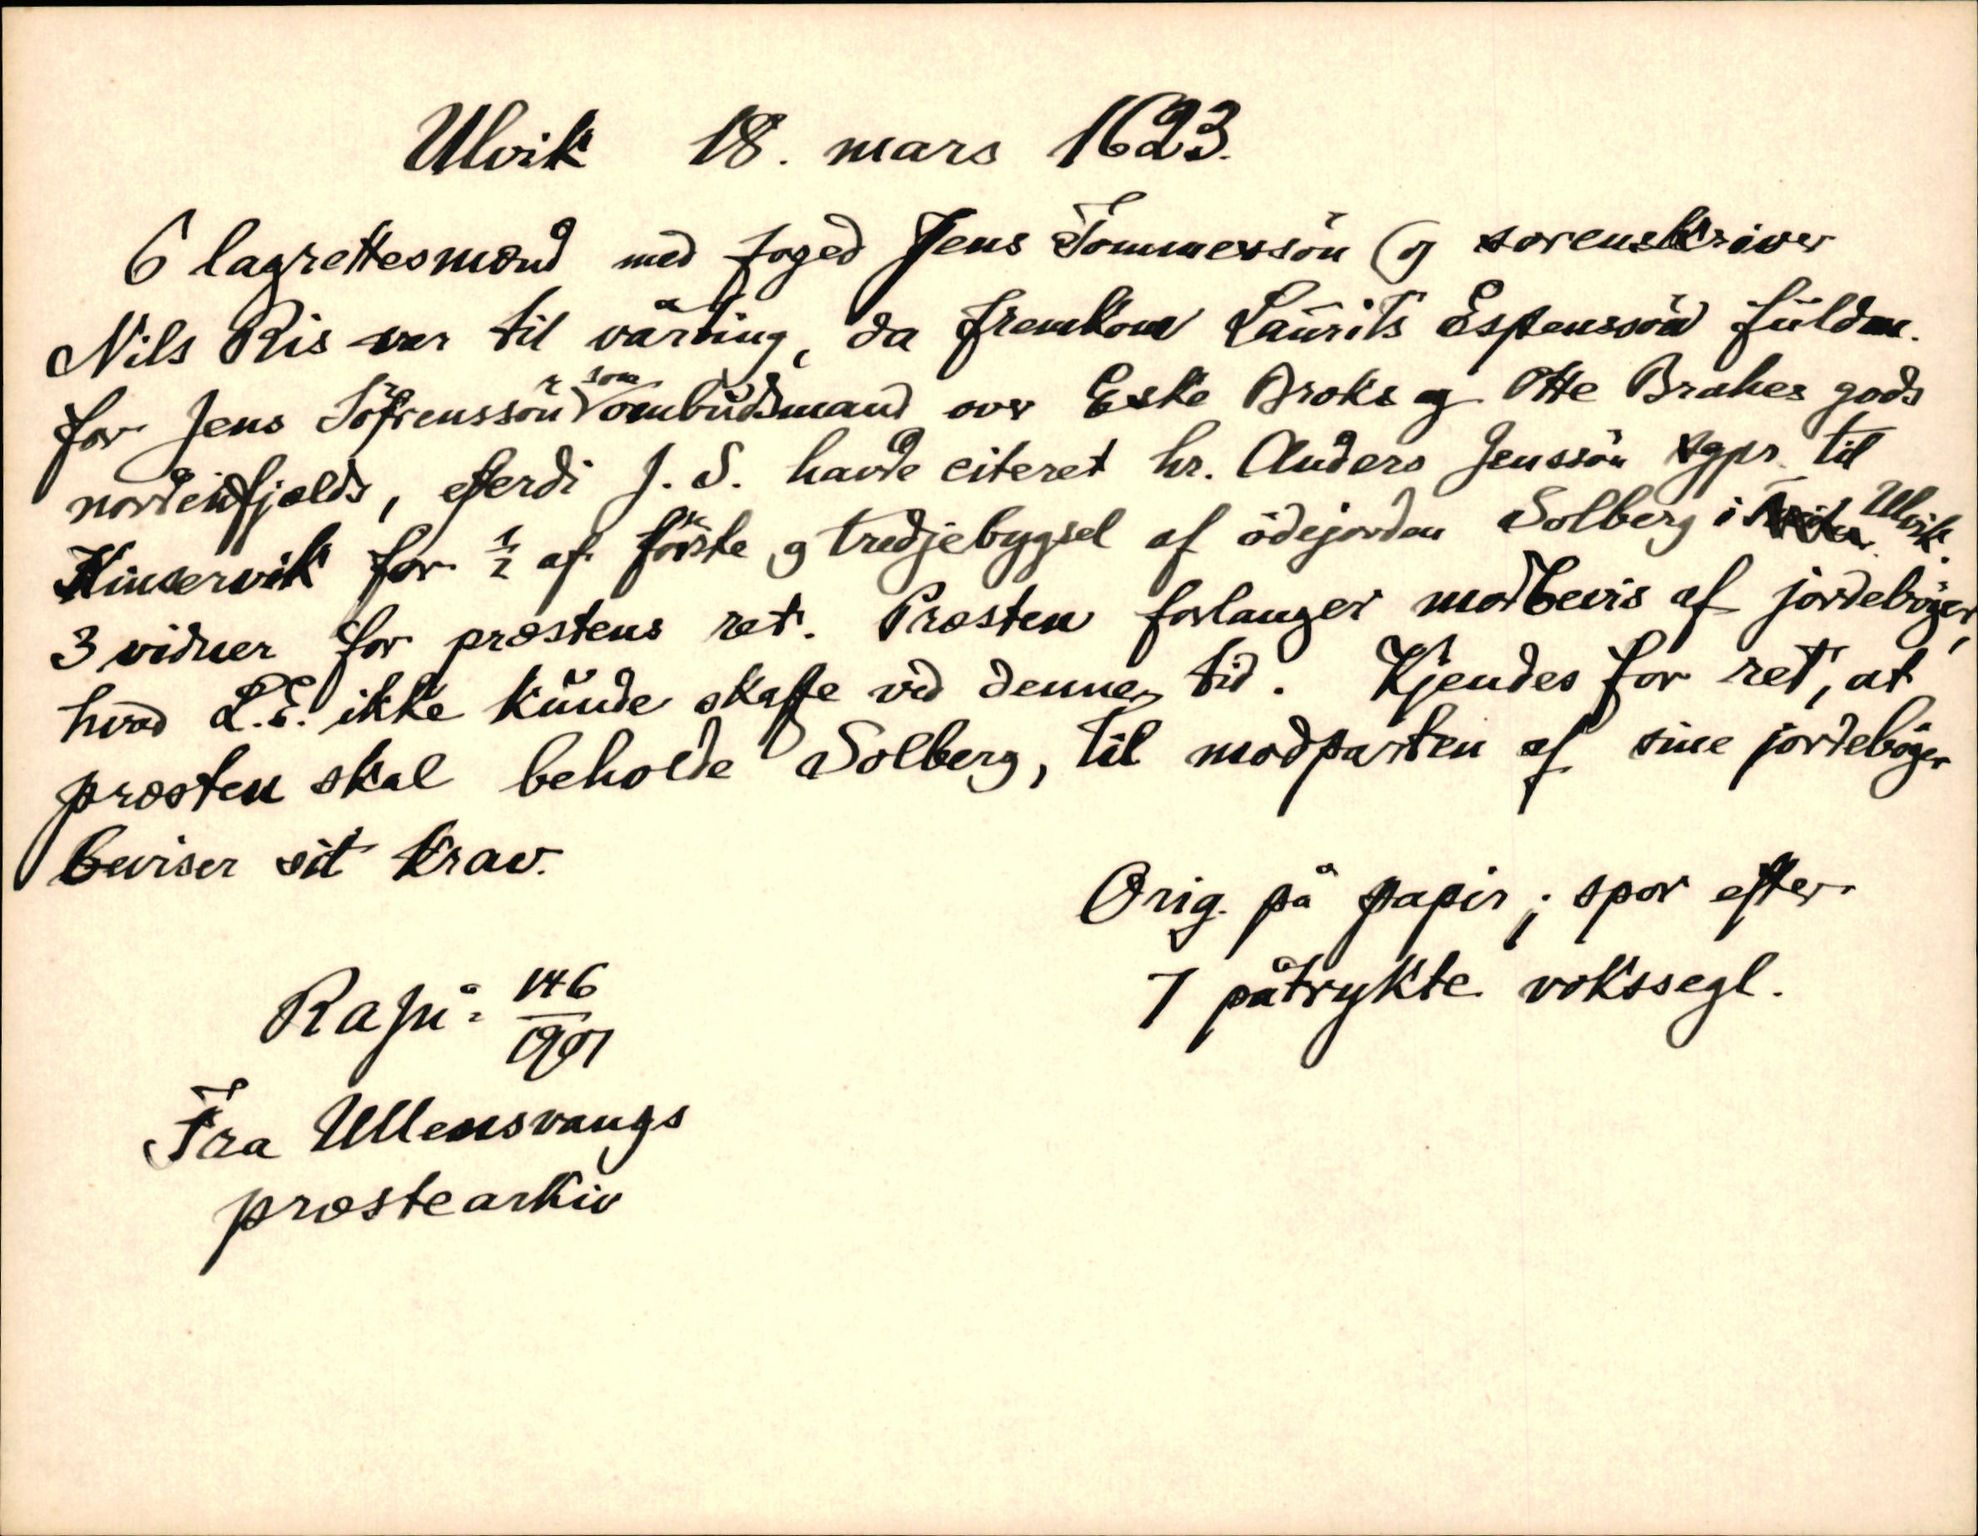 Ulvik 18. mars 1623.
6 lagrettesmænd med foged Jens Tommessön og sorenskriver
Nils Ris var til vårting, da fremkom Laurits Espenssön fuldm.
for Jens Söfrenssön som ombudsmand over Eske Broks og Otte Brahes gods
nordenfjælds, eferdi J. S. havde citeret hr. Anders Jenssön sgpr. til
Kinservik for ½ af förste og tredjebygsel af ödejorden Solberg i Ulvik.
3 vidner for præstens ret. Præsten forlanger modbevis af jordebøger,
hvad L. E. ikke kunde skaffe ved denne tid. Kjendes for ret, at
præsten skal beholde Solberg, til modparten af sine jordebøger
beviser sit krav.
Orig. på papir; spor efter
7 påtrykte vokssegl.
RaJni: 146/1901
Fra Ullensvangs
præstearkiv